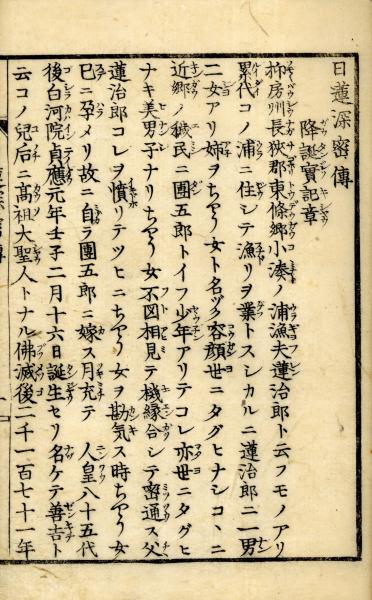 日蓮深密傳
降誕實記章
抑房州長狹郡東條郷小湊ノ浦漁夫蓮治郎ト云フモノアリ
累代コノ浦ニ住シテ漁リヲ業トスシカルニ蓮治郎ニ一男
二女アリ姉ヲちやう女ト名ヅク容顔世ニタグヒナシコヽニ
近郷ノ穢民ニ團五郎トイフ少年アリテコレ亦世ニタグヒ
ナキ美男子ナリちやう女不図相見テ機縁合シテ密通ス父
蓮治郎コレヲ憤リテツヒニちやう女ヲ勘気ス時ちやう女
已ニ孕メリ故ニ自ラ團五郎ニ嫁ス月充テ人皇八十五代
後白河院貞應元年壬子二月十六日誕生セリ名ケテ善吉ト
云コノ兒后ニ高祖大聖人トナル佛滅後二千一百七十一年